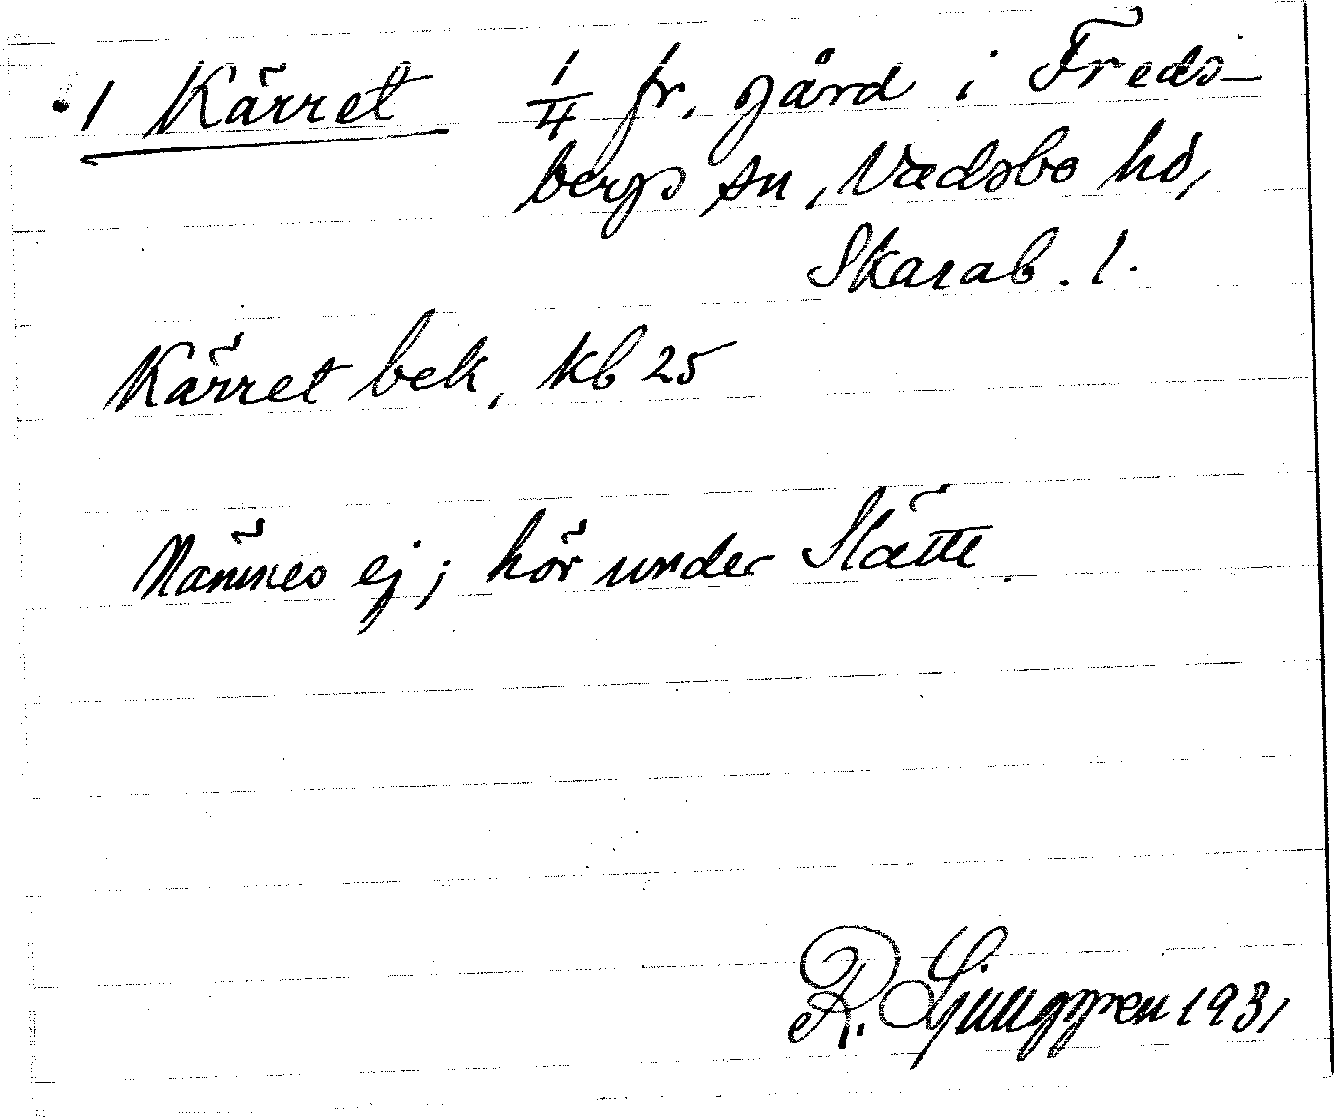 1 Kärret 1/4 fr. gård i Freds-
bergs sn, Vadsbo hd,
Skarab. l.
Kärret bek, kb 25
Nämnes ej; hör under Slätte.
R. Ljunggren 1931